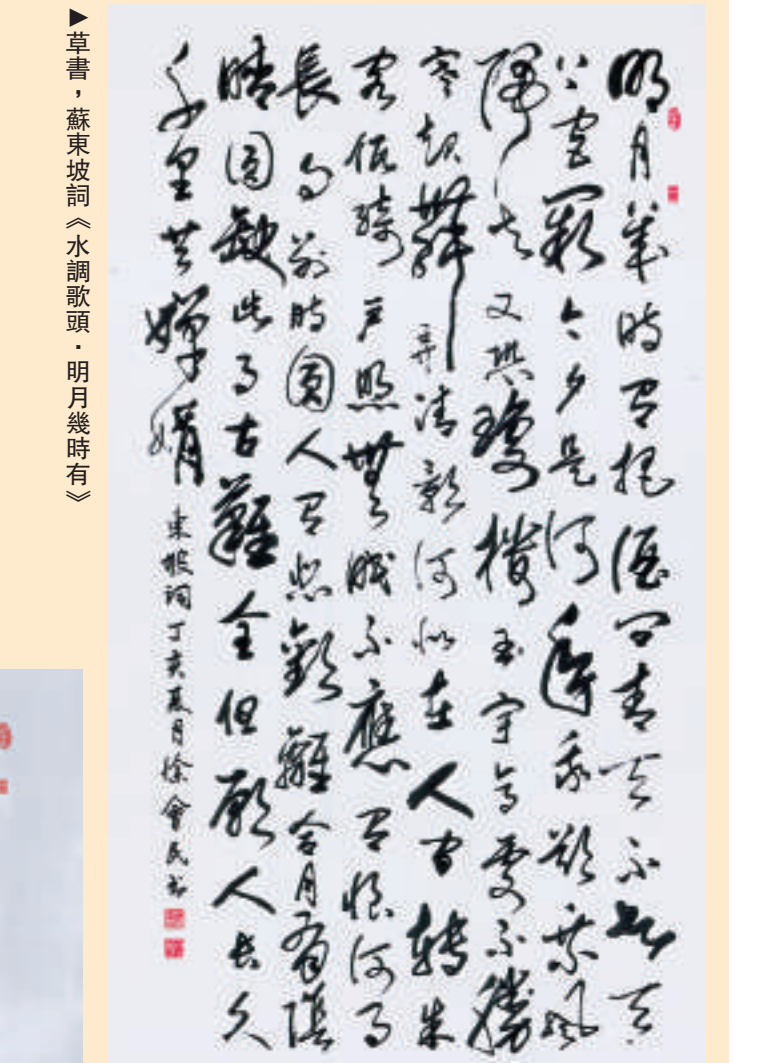 明月幾時有把酒問青天不知天
上宮闕今夕是何年我欲乘風
歸去又恐瓊樓玉宇高處不勝
寒起舞弄清影何似在人間轉朱
閣低綺戶照無眠不應有恨何事
長向別時圓人有悲歡離合月有陰
晴圓缺此事古難全但願人長久
千里共嬋娟 東坡詞丁亥夏月徐會民书
▶草書，蘇東坡詞《水調歌頭．明月幾時有》